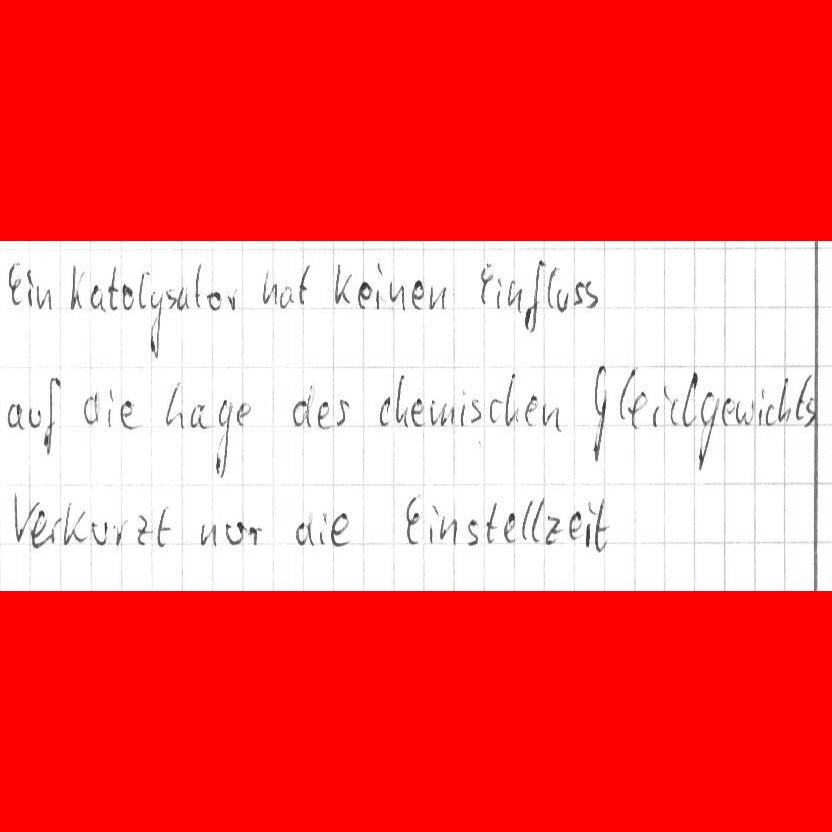 Ein Katalysator hat keinen Einfluss
auf die Lage des chemischen Gleichgewichts
Verkürzt nur die Einstellzeit